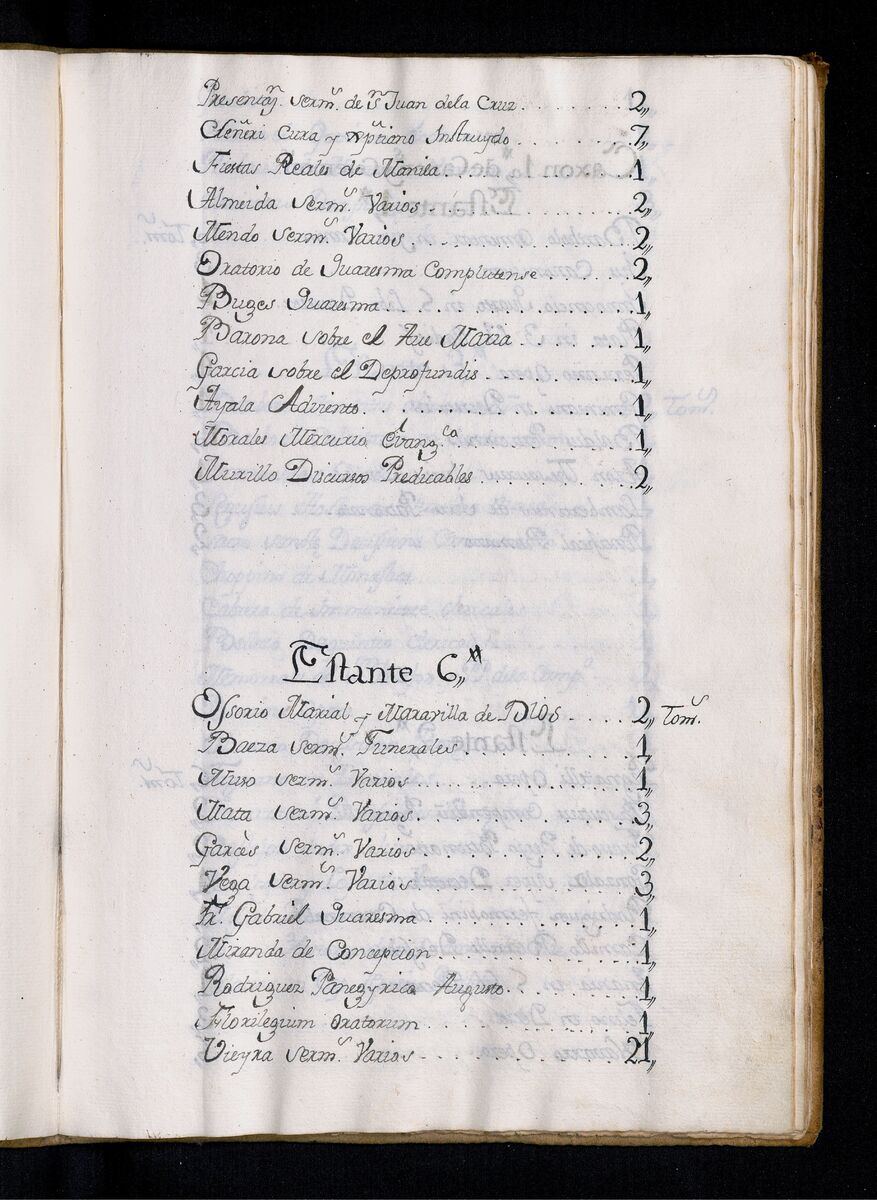 Presentaⁿ. sermˢ. de Sⁿ Juan dela Cruz . . . . . . . . 2,,
Cura y Xptiano Instruydo . . . . . . . . 7,,
Fiestas Reales de Manila . . . . . . . . 1
Almeida sermˢ. Varios . . . . . . . . 2,,
Mendo sermˢ. Varios . . . . . . . . 2,,
Oratorio de Quaresma Complutense . . . . . . . . 2,,
Buges Quaresma . . . . . . . . 1,,
Barona sobre el Aue Maria . . . . . . . . 1,,
Garcia sobre el Deprofundis . . . . . . . . 1,,
Ayala Adviento . . . . . . . . 1,,
Morales Mercurio Evangᶜᵒ . . . . . . . . 1,,
Murillo Discursos Predicables . . . . . . . . 2,,
Estante 6,,ᵗᵒ
Ossorio Marial y Maravilla de Dios . . . . . 2,, Tomˢ.
Baeza sermˢ. Funerales . . . . . . . . 1,,
Muso sermˢ. Varios . . . . . . . . 1,,
Mata sermˢ. Varios . . . . . . . . 3,,
Garcès sermˢ. Varios . . . . . . . . 2,,
Vega sermˢ. Varios . . . . . . . . 3,,
Fr. Gabriel Quaresma . . . . . . . . 1,,
Miranda de Concepcion . . . . . . . . 1,,
Rodriguez Panegyrico Augusto . . . . . . . . 1,,
Florilegium oratorum . . . . . . . . 1,,
Vieyra sermˢ. Varios . . . . . . . . 21,,